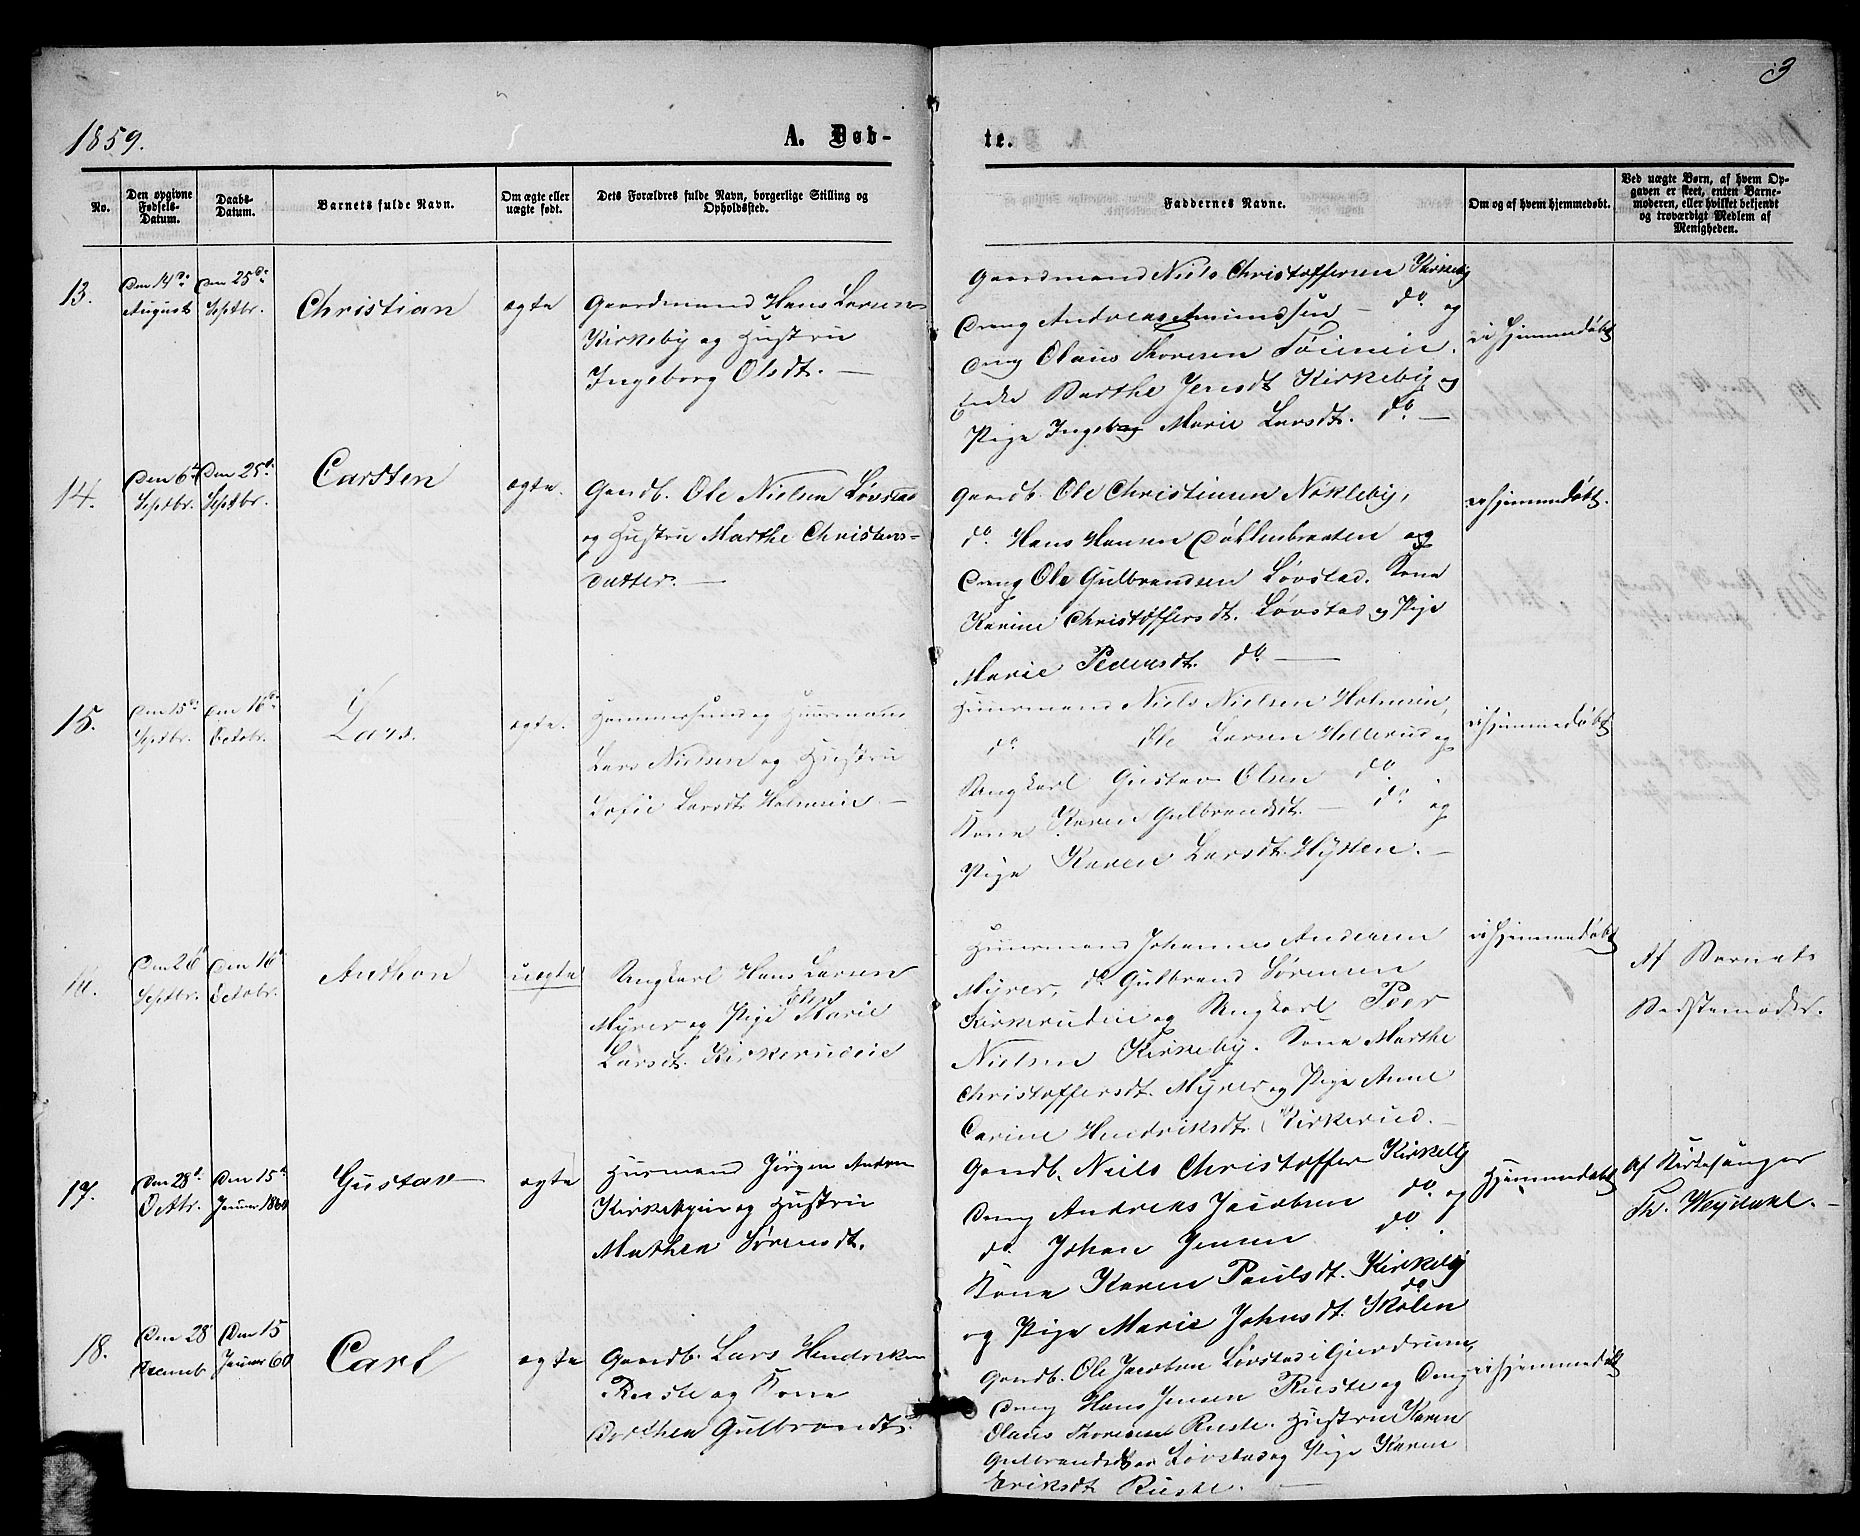 3
1859.
A. Døb-
te.
No.
Den opgivne Fødsels-Datum.
Daabs-Datum.
Barnets fulde Navn.
Om ægte eller uægte født.
Dets Forældres fulde Navn, borgerlige Stilling og Opholdssted.
Faddernes Navne.
Om og af hvem hjemmedøbt.
Ved uægte Børn, af hvem Op-
gaven er skeet, enten Barne-
moderen, eller hvilket bekjendt
og troværdigt Medlem af
Menigheden.
13.
Den 14de August
Den 25de Septbr.
Christian
ægte
Gaardmand Hans Larsen
Kirkeby og Hustru
Ingeborg Olsdt.
Gaardmand Niels Christoffersen Kirkeby
Dreng Andreas Amundsen - do. og
Dreng Olaus Thoresen
Enke Marthe Jensdt Kirkeby og
Pige Ingeborg Marie Larsdt. do.
ei hjemmedøbt
14.
Den 6te Septbr.
Den 25de Septbr.
Carsten
ægte.
Gaardb. Ole Nielsen Løvstad
og Hustru Marthe Christens-
datter.
Gaardb. Ole Christensen Nøkleby,
do. Hans Hansen Døhlenbraaten og
Dreng Ole Gulbrandsen Løvstad. Kone
Karine Christoffersdt. Løvstad og Pige
Marie Pedersdt. do.
ei hjemmedøbt.
15.
Den 15de Septbr.
Den 16de Octobr.
Lars.
ægte.
Huusmand
Lars Nielsen og Hustru
Sofie Larsdt Holmeie.
Huusmand Niels Nielsen Holmeie,
do Ole Larsen Hellerud og
Ungkarl Gustav Olsen do.
Kone Karen Gulbrandsdt. - do. og
Pige Karen Larsdt.
ei hjemmedøbt
16.
Den 26de Septbr.
Den 16de Octobr.
Anthon
uægte
Ungkarl Hans Larsen
Myrer og Pige Else Marie
Larsdt. Kirkerudeie
Huusmand Johannes Andersen
Myrer, do Gulbrand Sørensen
Kirkerudeie og Ungkarl Peer
Nielsen Kirkeby. Kone Marthe
Christoffersdt. Myrer og Pige Anne
Carine Hendriksdt. Kirkerud.
ei hjemmedøbt
Af Barnets
Bedstemoder.
17.
Den 28de Octbr.
Den 15de Januar 1860
Gustav
ægte
Husmand Jørgen Andersen
Kirkebyeie og Hustru
Mathea Sørensdt.
Gaardb. Niels Christoffersen Kirkeby
Dreng Andreas Jacobsen do. og
do Johan Jensen do.
Kone Karen Paulsdt. Kirkeby
og Pige Marie Johnsdt. Skolen do
Hjemmedøbt
Af Kirkesanger
Th. Weydahl.
18.
Den 28 Decemb
Den 15 Januar 60
Carl
ægte
Gaardb. Lars Hendriksen
Ruste og Kone
Dorthea Gulbrandsdt.
Gaardb. Ole Jacobsen Løvstad i Gjerdrum,
Dreng Hans Jensen Ruste og Dreng
Olaus Thoresen Ruste. Hustru Karen
Gulbrandsdtter Løvstad og Pige Karen
Eriksdt Ruste.
ei hjemmedøbt